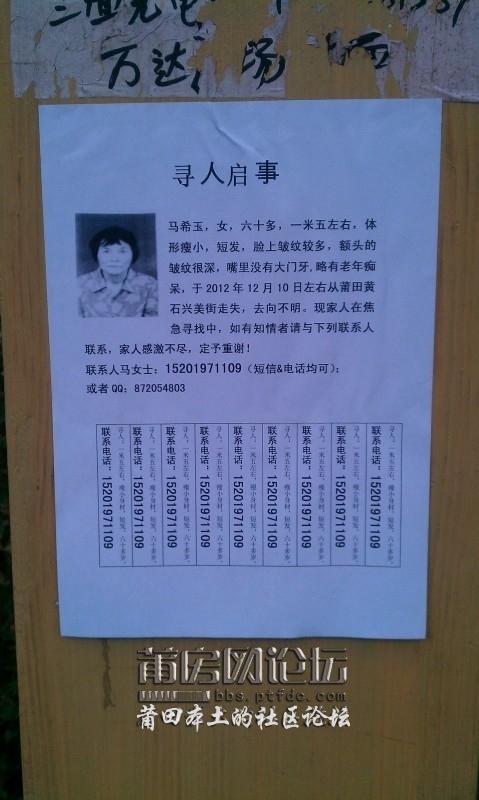 万达
寻人启事
马希玉，女，六十多，一米五左右，体
形瘦小，短发，脸上皱纹较多，额头的
皱纹很深，嘴里没有大门牙,略有老年痴
呆，于 2012 年 12 月 10 日左右从莆田黄
石兴美街走失，去向不明。现家人在焦
急寻找中，如有知情者请与下列联系人
联系，家人感激不尽，定予重谢！
联系人马女士：15201971109（短信&电话均可）；
或者 QQ：872054803
寻人：一米五左右，瘦小身材，短发，六十多岁。
联系电话：15201971109
寻人：一米五左右，瘦小身材，短发，六十多岁。
联系电话：15201971109
寻人：一米五左右，瘦小身材，短发，六十多岁。
联系电话：15201971109
寻人：一米五左右，瘦小身材，短发，六十多岁。
联系电话：15201971109
寻人：一米五左右，瘦小身材，短发，六十多岁。
联系电话：15201971109
寻人：一米五左右，瘦小身材，短发，六十多岁。
联系电话：15201971109
寻人：一米五左右，瘦小身材，短发，六十多岁。
联系电话：15201971109
寻人：一米五左右，瘦小身材，短发，六十多岁。
联系电话：15201971109
寻人：一米五左右，瘦小身材，短发，六十多岁。
联系电话：15201971109
莆房网论坛
bbs.ptfdc.com
莆田本土的社区论坛